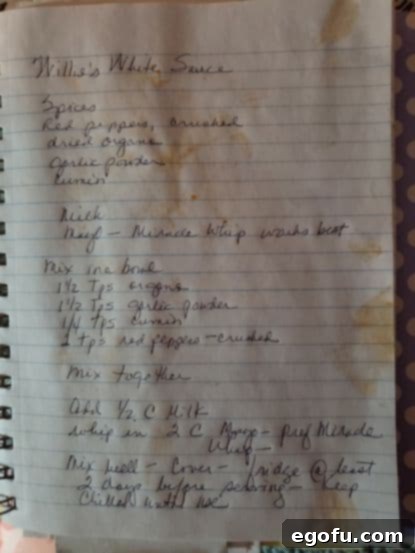 Willie's White Sauce
Spices
Red peppers, crushed
dried organo
garlic powder
cumin
Milk
Mayo - Miracle Whip works best
Mix one bowl
1 1/2 Tps organo
1 1/2 Tps garlic powder
1/4 Tps cumin
2 tps red peppers - crushed
Mix together
Add 1/2 C Milk
whip in 2 C Mayo - pref Miracle
Whip -
Mix well - Cover - fridge @ least
2 days before serving - keep
Chilled
egofu.com